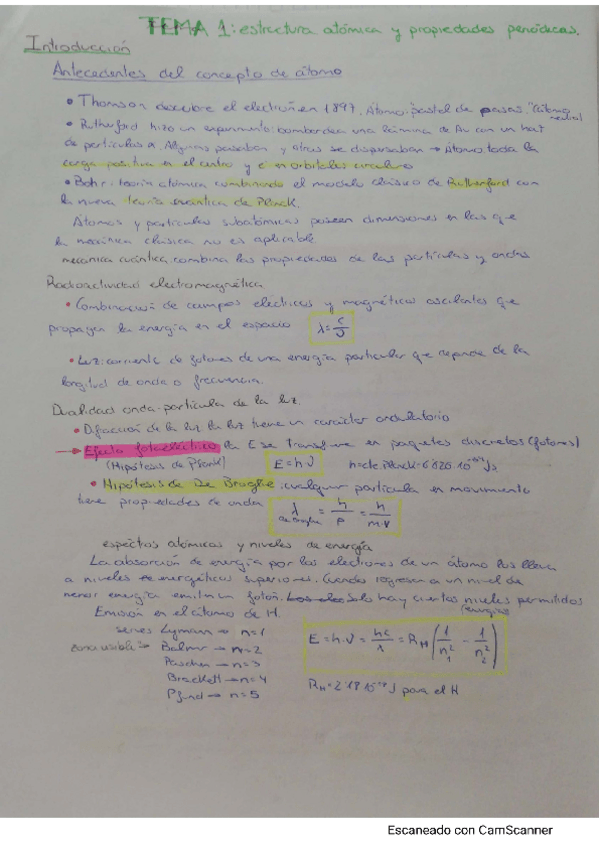 TEMA 1: estructura atómica y propiedades periódicas.
Introducción
Antecedentes del concepto de átomo
• Thomson descubre el electrón en 1897. Átomo: pastel de pasas. "(átomo
neutral
• Rutherford hizo un experimento: bombardea una lámina de Au con un haz
de partículas α. Algunas pasaban y otras se dispersaban → Átomo toda la
carga positiva en el centro y e⁻ en orbitales circulares
• Bohr: teoría atómica combinando el modelo clásico de Rutherford con
la nueva teoría cuántica de Planck.
Átomos y partículas subatómicas poseen dimensiones en las que
la mecánica clásica no es aplicable
mecanica cuántica: combina las propiedades de las partículas y ondas
Radioactividad electromagnética
• Combinación de campos eléctricos y magnéticos oscilantes que
propagan la energía en el espacio λ = c/ν
• Luz: corriente de fotones de una energía particular que depende de la
longitud de onda o frecuencia.
Dualidad onda-partícula de la luz.
• Difracción de la luz la luz tiene un carácter ondulatorio
→ Efecto fotoeléctrico la E se transfiere en paquetes discretos (fotones)
(Hipótesis de Planck) E = h·ν h = cte. Planck = 6'626·10⁻³⁴ Js
• Hipótesis de De Broglie: cualquier partícula en movimiento
tiene propiedades de onda λ de Broglie = h/p = h/m·v
espectros atómicos y niveles de energía
La absorción de energía por los electrones de un átomo los lleva
a niveles energéticos superiores. Cuando regresa a un nivel de
menor energía emiten un fotón. Solo hay ciertos niveles permitidos
(energías)
Emisión en el átomo de H.
series Lyman → n=1
zona visible → Balmer → n=2
Paschen → n=3
Brackett → n=4
Pfund → n=5
E = h·ν = hc/λ = R_H (1/n₁² - 1/n₂²)
R_H = 2'18 10⁻¹⁸ J para el H
Escaneado con CamScanner